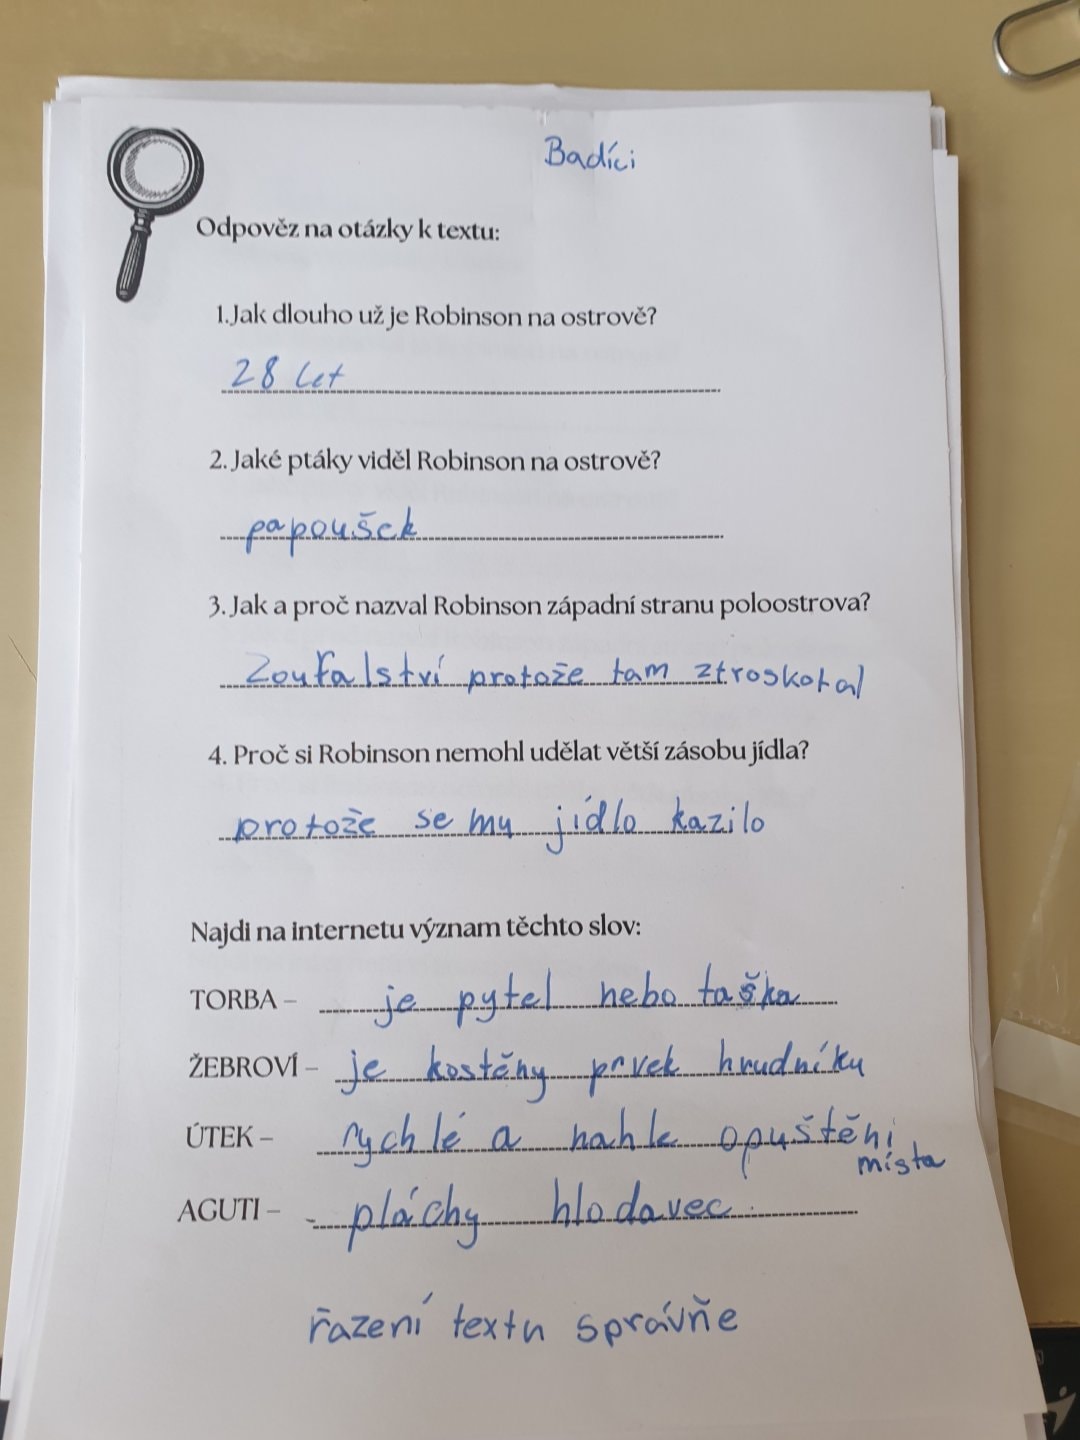 Badíci
Odpověz na otázky k textu:
1.Jak dlouho už je Robinson na ostrově?
28 let
2. Jaké ptáky viděl Robinson na ostrově?
papoušek
3. Jak a proč nazval Robinson západní stranu poloostrova?
Zoufalství protože tam ztroskotal
4. Proč si Robinson nemohl udělat větší zásobu jídla?
protože se mu jídlo kazilo
Najdi na internetu význam těchto slov:
TORBA – je pytel nebo taška
ŽEBROVÍ – je kostěny prvek hrudníku
ÚTEK – rychlé a nahle opuštěni
místa
AGUTI – pláchy hlodavec
řazení textu správňe